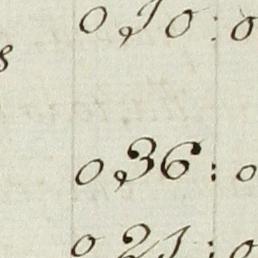 0,10:0
s
0,36:0
0,21:0